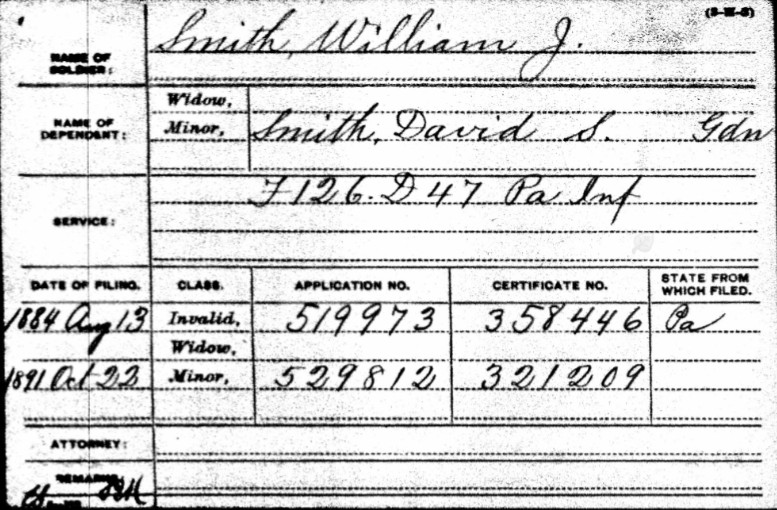 (3-M-5)
NAME OF SOLDIER: Smith, William J.
NAME OF DEPENDENT: Widow,
Minor, Smith, David S. Gdn
SERVICE: F 126. D 47 Pa Inf
DATE OF FILING. CLASS. APPLICATION NO. CERTIFICATE NO. STATE FROM WHICH FILED.
1884 Aug 13 Invalid, 519973 358446 Pa
Widow,
1891 Oct 22 Minor, 529812 321209
ATTORNEY:
REMARKS: